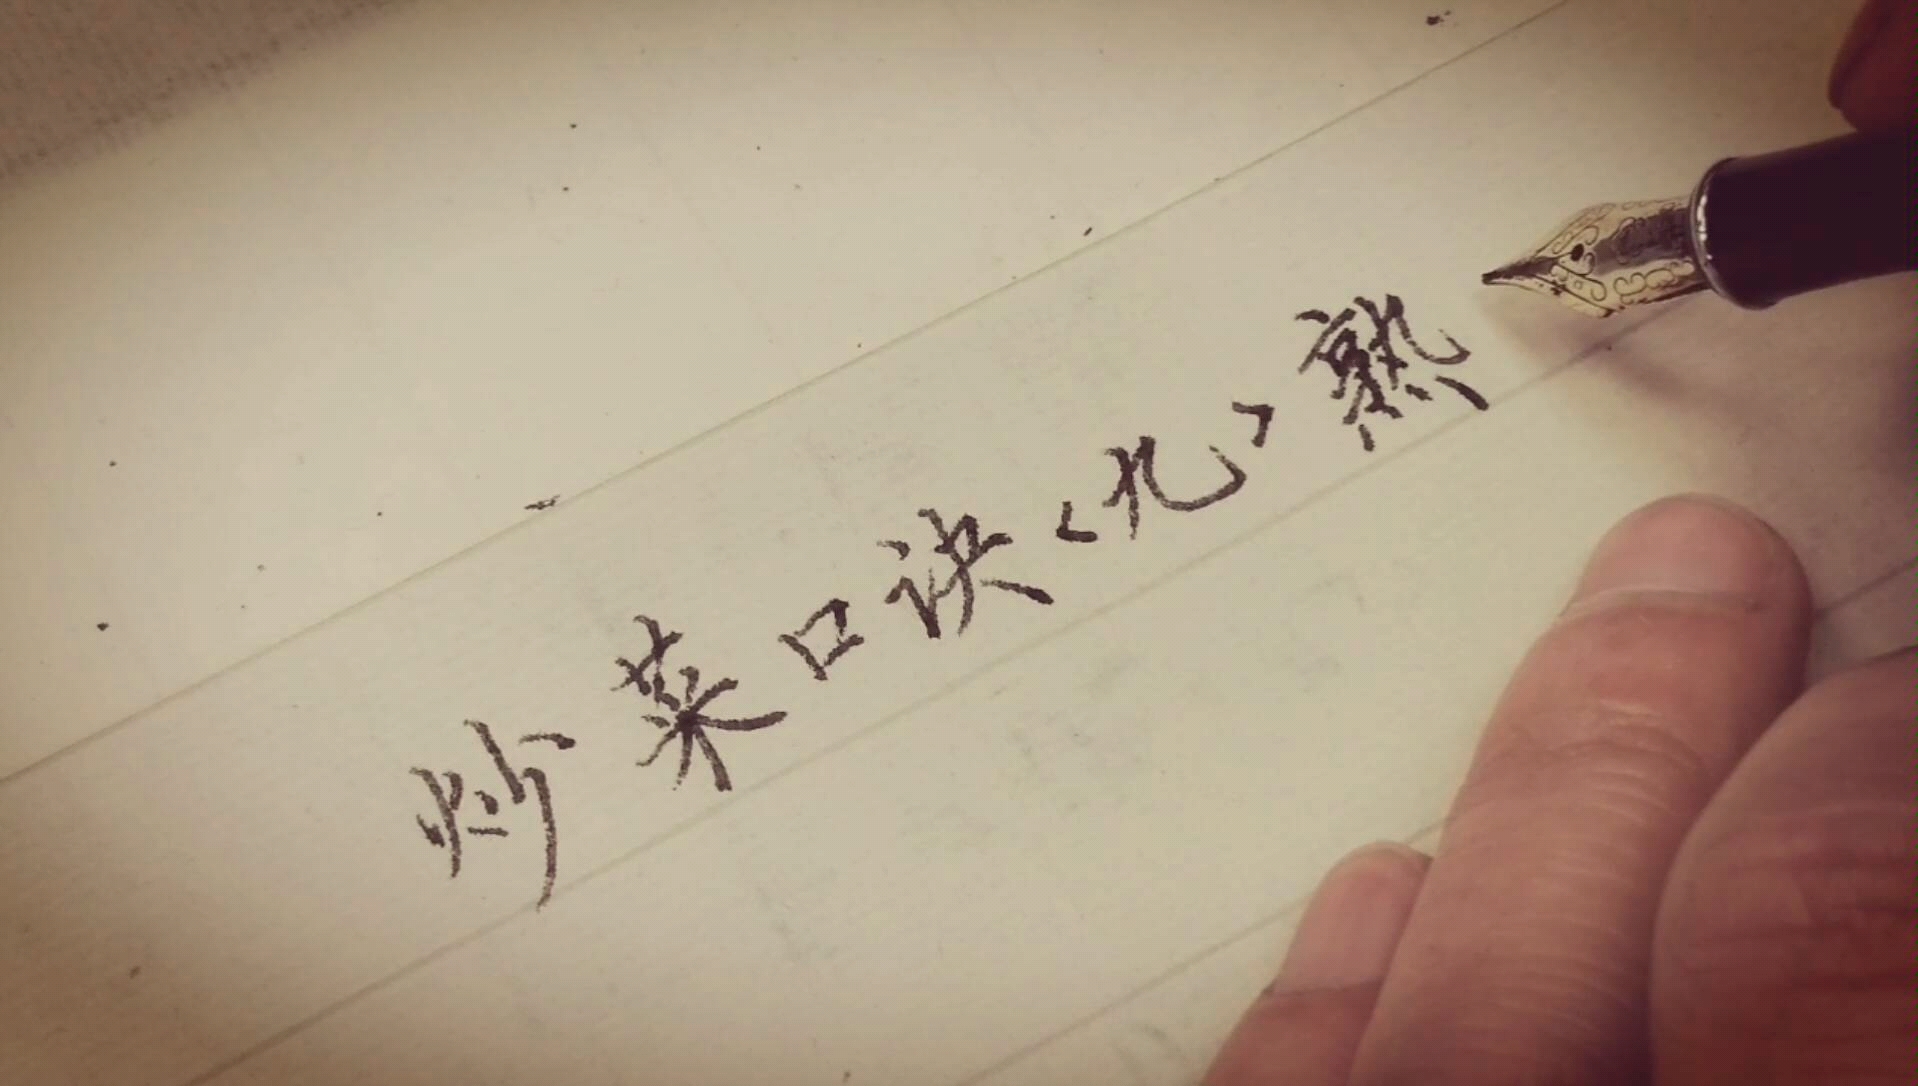 炒菜口诀<九>熟